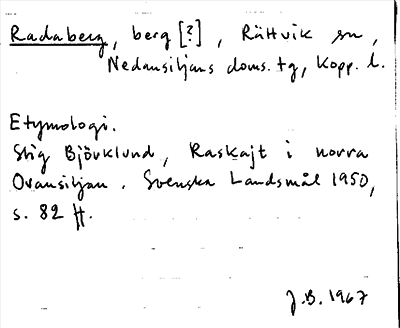 Radaberg, berg [?], Rättvik sn,
Nedansiljans doms. tg, Kopp. l.
Etymologi.
Stig Björklund, Raskajt i norra
Ovansiljan. Svenska Landsmål 1950,
s. 82 ff.
J.B. 1967